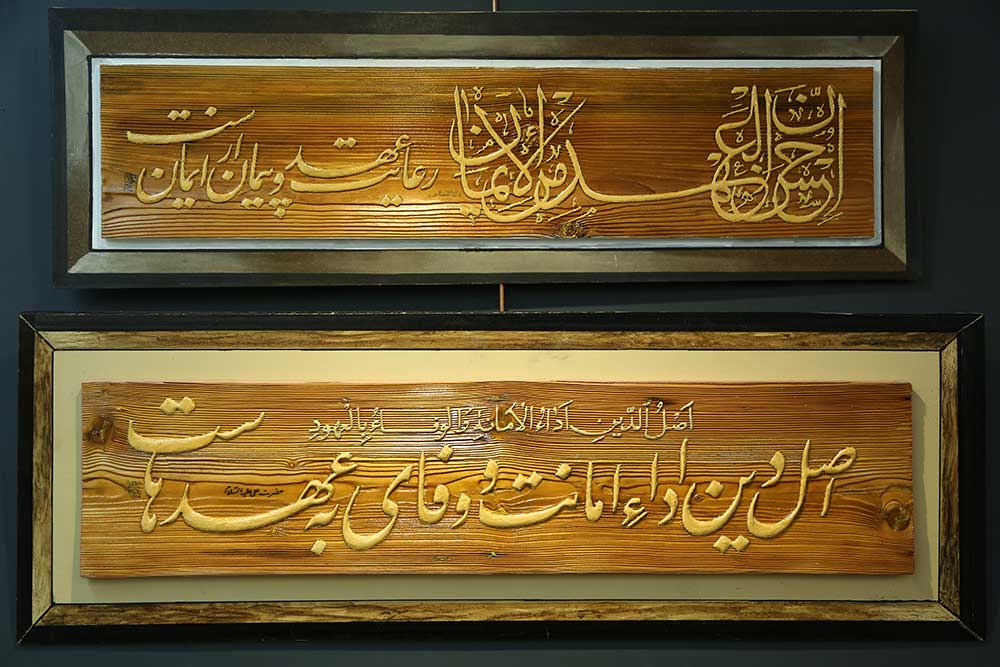 اِنَّ حُسنَ العَهدِ مِنَ الاِیمانِ
رعایت عهد و پیمان از ایمان است
اَصْلُ الدّینِ اَداءُ الْاَمانَةِ وَالْوَفاءُ بِالْعُهودِ
اصل دین اداءِ امانت و وفای به عهدهاست
حضرت علی علیه السلام